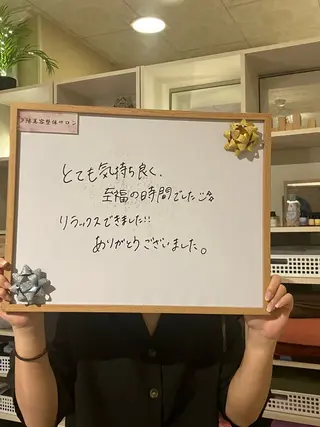 美容整体サロン
とても気持ち良く、
至福の時間でした
リラックスできました!!
ありがとうございました。